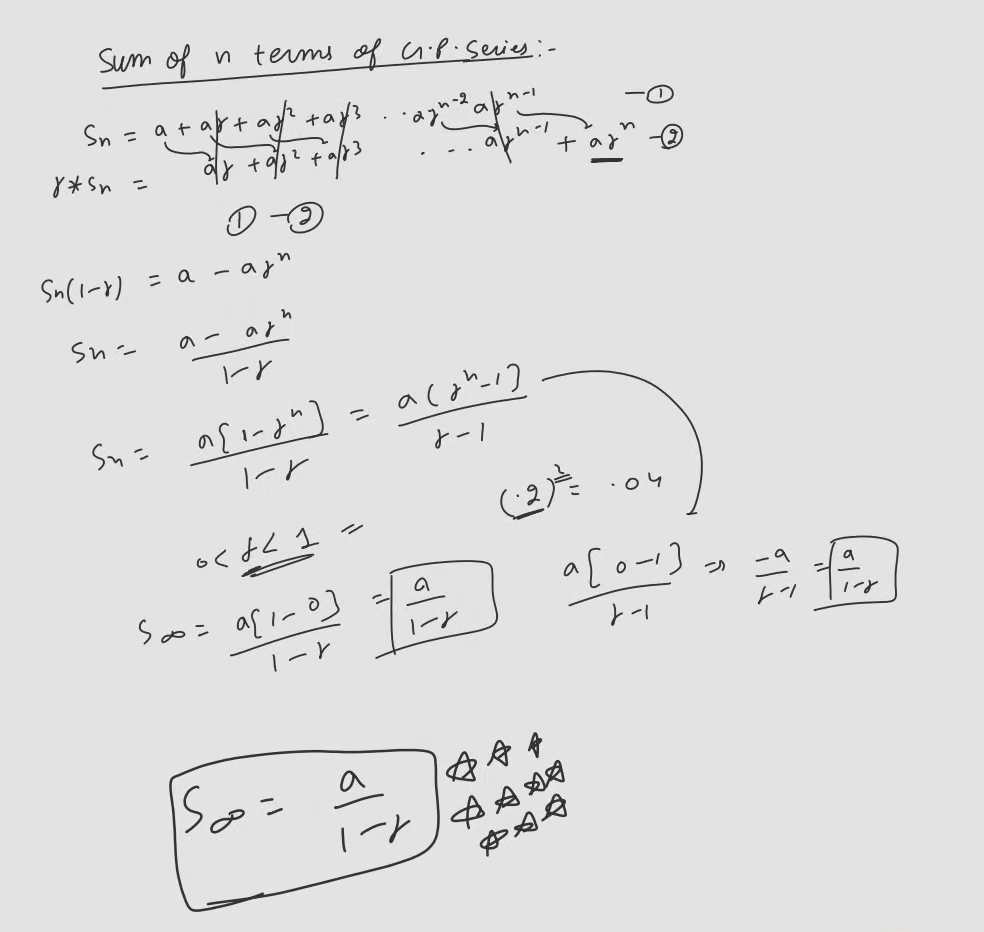 Sum of n terms of G.P. Series:-
Sn = a + ar + ar² + ar³ . . ar^n-2 ar^n-1 — ①
r*Sn = ar + ar² + ar³ . . . . ar^n-1 + ar^n — ②
① — ②
Sn(1-r) = a - ar^n
Sn = (a - ar^n)/(1-r)
Sn = a[1-r^n]/(1-r) = a(r^n-1]/(r-1)
(.2)² = .04
0 < r < 1 =
a[0-1]/(r-1) ⇒ -a/(r-1) = a/(1-r)
S∞ = a[1-0]/(1-r) = a/(1-r)
S∞ = a/(1-r)